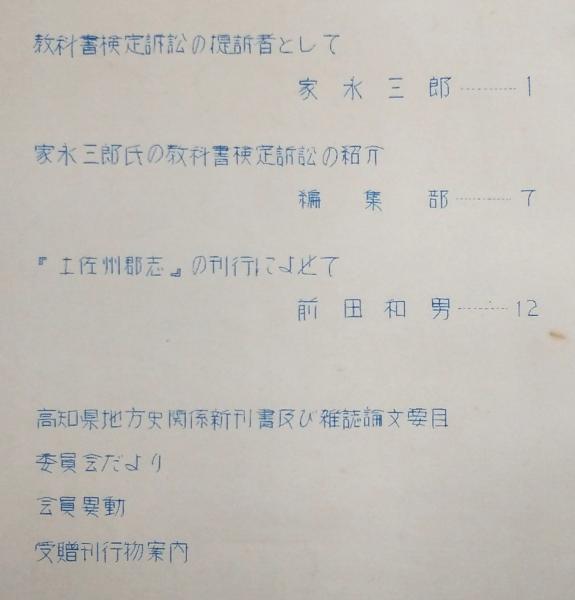 教科書検定訴訟の提訴者として
家永三郎………1
家永三郎氏の教科書検定訴訟の紹介
編集部………7
『土佐州郡志』の刊行によせて
前田和男………12
高知県地方史関係新刊書及び雑誌論文要目
委員会だより
会員異動
受贈刊行物案内